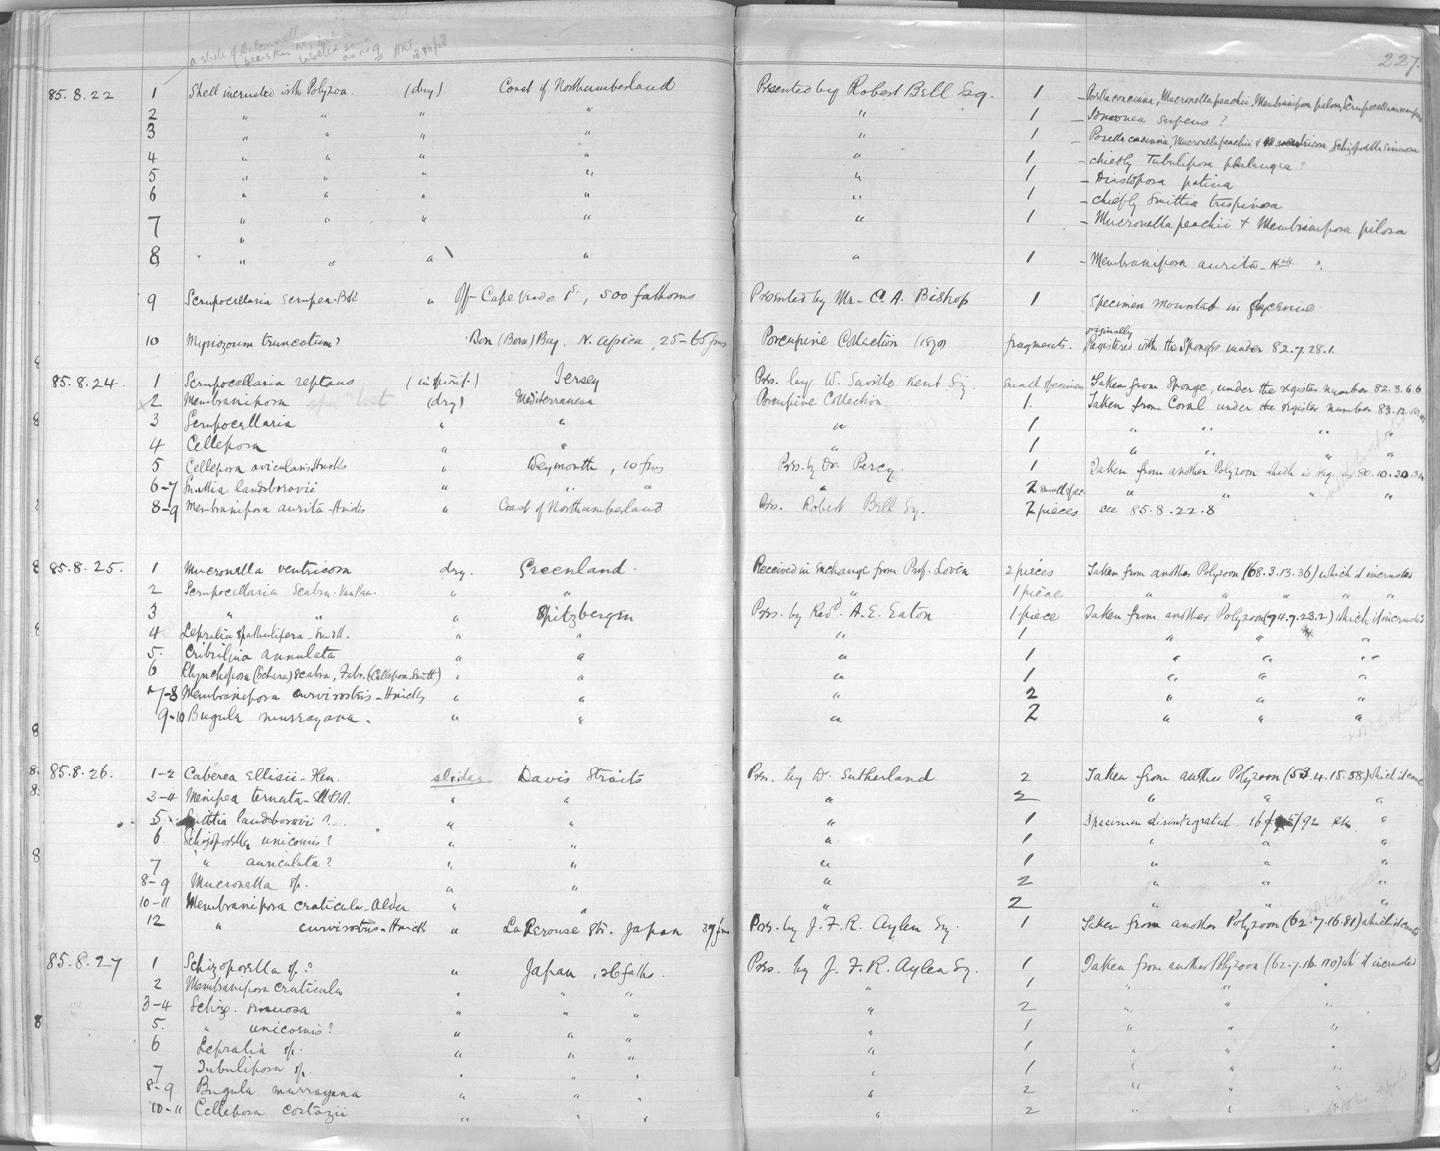 227.
85.8.22 1 Shell incrusted with Polyzoa. (dry) Coast of Northumberland Presented by Robert Bell Esq. 1 – Porella concinna, Micronella peachii, Membranipora pilosa,
2 " " " " " 1 – serpens ?
3 " " " " " 1 – Porella concinna, Mucronella peachii & Schizoporella sinuosa
4 " " " " " 1 – chiefly Tubulipora phalangea ?
5 " " " " " 1 – Diastopora patina
6 " " " " " 1 – chiefly Smittia trispinosa
7 " " " " " 1 – Mucronella peachii & Membranipora pilosa
8 " " " " " 1 – Membranipora aurita –
9 Scrupocellaria scrupea – Bsk " Off – Cape Verde Is, 500 fathoms Presented by Mr. C. A. Bishop 1 Specimen mounted in glycerine.
10 Myriozoum truncatum? Bon (Bona) Bay. N. Africa, 25–65 fms Porcupine Collection (1870) fragments. originally Registered with the Sponges under 82.7.28.1.
85.8.24. 1 Scrupocellaria reptans (in spirit.) Jersey Pres. by W. Saville Kent Esq small specimens Taken from Sponge, under the register number 82.3.6.6.
2 Membranipora (dry) Mediterranean Porcupine Collection 1. Taken from Coral under the register number
3 Scrupocellaria " " " 1 " " " "
4 Cellepora " " " 1 " " " "
5 Cellepora avicularis Hincks " Weymouth, 10 fms Pres. by Dr. Percy. 1 Taken from another Polyzoon which is reg.
6–7 Smittia landsborovii " " " " 2 small spec. " " " "
8–9 Membranipora aurita – Hincks " Coast of Northumberland Pres. Robert Bell Esq. 2 pieces see 85.8.22.8
85.8.25. 1 Mucronella ventricosa dry. Greenland. Received in Exchange from Prof. Lovén 2 pieces Taken from another Polyzoon (68.3.13.36) which it incrusted
2 Scrupocellaria scabra – Van Ben. " " " 1 piece " " " "
3 " " " Spitzbergen Pres. by Revd. A. E. Eaton 1 piece Taken from another Polyzoon (74.9.23.2) which it incrusted
4 Lepralia spathulifera – Smitt. " " " 1 " " "
5. Cribrilina annulata " " " 1 " " "
6 Rhynchopora (Eschara) scabra, Fabr. (Cellepora Smitt) " " " 1 " " "
7–8 Membranipora curvirostris – Hincks " " " 2 " " "
9–10 Bugula murrayana – " " " 2 " " "
85.8.26. 1–2 Caberea Ellisii – Flem. slides Davis Straits Pres. by Dr. Sutherland 2 Taken from another Polyzoon (53.4.15.58) which it
3–4 Menipea ternata – Ell & Sol. " " " 2 " " "
5. Smittia landsborovii ?. " " " 1 Specimen disintegrated. "
6 Schizoporella unicornis ? " " " 1 " " "
7 " auriculata ? " " " 1 " " "
8–9 Mucronella sp. " " " 2 " " "
10–11 Membranipora craticula – Alder " " " 2 " " "
12 " curvirostris – Hincks " La Perouse Str. Japan 39 fms Pres. by J. F. R. Aylen Esq. 1 Taken from another Polyzoon (62.7.16.81) which it
85.8.27 1 Schizoporella sp. ? " Japan, 26 faths. Pres. by J. F. R. Aylen Esq. 1 Taken from another Polyzoon wh. it incrusted
2 Membranipora craticula " " " " 1 " " "
3–4 Schizo. sinuosa " " " " 2 " " "
5. " unicornis ? " " " " 1 " " "
6 Lepralia sp. " " " " 1 " " "
7 Tubulipora sp. " " " " 1 " " "
8–9 Bugula murrayana " " " " 2 " " "
10–11 Cellepora costazii " " " " 2 " " "